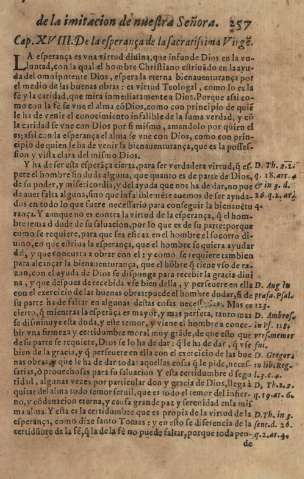 de la imitacion de nuestra Señora. 257
Cap. XVIII. De la esperança de la sacratissima Virgẽ.
LA esperança es vna virtud diuina, que infunde Dios en la vo-
luntad, con la qual el hombre Christiano estriuãdo en la ayu-
da del omnipotente Dios, espera la eterna bienauenturança por
el medio de las buenas obras: es virtud Teologal, como lo es la
fè y la caridad, que mira inmediatamente a Dios. Porque assi co-
mo con la fè se vne el alma cõ Dios, como con principio de quiẽ
le ha de venir el conocimiento infalible de la suma verdad, y cõ
la caridad se vne con Dios por si mismo, amandolo por quien el
es; assi con la esperança el alma se vne con Dios, como con prin-
cipio de quien le ha de venir la bienauenturança, que es la posses-
sion y vista clara del mismo Dios.
Y ha de ser esta esperãça cierta, para ser verdadera virtud, q̃ es- D. Th. 2. 2.
pere el hombre sin duda alguna, que quanto es de parte de Dios, q. 18. art. 4
de su poder, y misericordia, y del ayuda que nos ha de dar, no pue & in 3. d.
de auer falta alguna, sino que infaliblemẽte auemos de ser ayuda- 26. q. 2. ar.
dos en todo lo que fuere necessario para conseguir la bienauentu
rança. Y aunque no es contra la virtud de la esperança, q̃ el hom-
bre tema o dude de su saluacion, por lo que es de su parte; porque
como se requiere, para que sea eficaz en el hombre el socorro di-
uino, en que estriua la esperança, que el hombre se quiera ayudar
dèl, y que concurra a obrar con el; y como se requiere tambien
para alcançar la bienauenturança, que el hõbre q̃ tiene vso de ra-
zon, con el ayuda de Dios se disponga para recebir la gracia diui
na, y que despues de recebida vse bien della, y perseuere en ella D. Aug in
con el exercicio de las buenas obras; puede el hombre dudar, si de præfa. Psal.
su parte ha de faltar en algunas destas cosas necessarias. Mas es 123.
cierto, q̃ mientras la esperança es mayor, y mas perfeta, tanto mas D. Ambros.
se disminuye esta duda, y este temor, y viene el hombre a conce- in Ps. 118.
bir vna firmeza y certidumbre moral muy grãde, de que esto que
de su parte se requiere, Dios se lo ha de dar: q̃ le ha de dar, q̃ vse
bien de la gracia, y q̃ perseuere en ella con el exercicio de las bue D. Gregorii
nas obras; y que le ha de dar todas aquellas cosas q̃ le pide, necef-
sarias, o prouechosas para su saluacion. Y esta certidumbre o segu
ridad, algunas vezes por particular don y gracia de Dios, llega à D. Th. 2. 2.
quitar del alma todo temor seruil, que es todo el temor del infier-
no, y cõdenacion eterna, y causa grande paz y serenidad en la mis
ma alma. Y esta es la certidumbre que es propia de la virtud de la D. Th. in 3.
esperança, como dize santo Tomas: y en esto se diferencia de la sent. d. 26.
certidũbre de la fè, q̃ la de la fè no puede faltar, porque toda pen- q. 2. ar. 4.
de